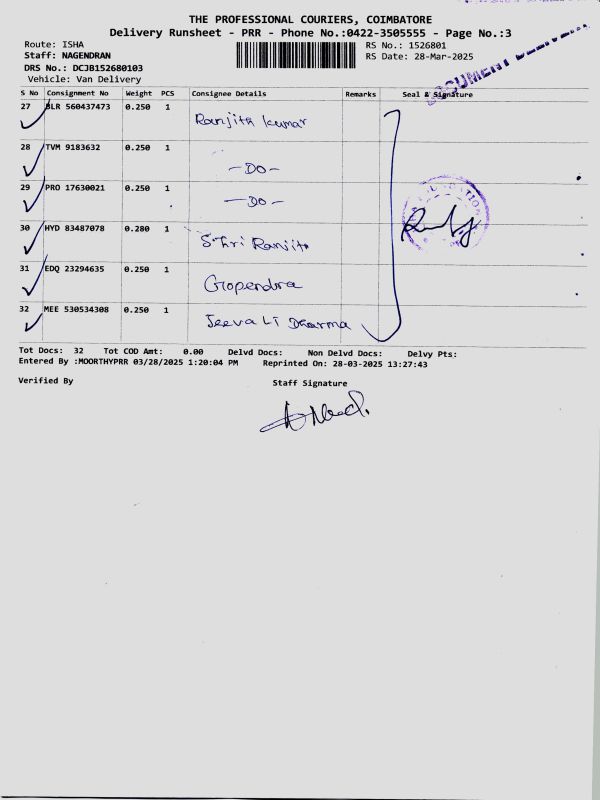 THE PROFESSIONAL COURIERS, COIMBATORE
Delivery Runsheet - PRR - Phone No.:0422-3505555 - Page No.:3
Route: ISHA
Staff: NAGENDRAN
DRS No.: DCJB152680103
Vehicle: Van Delivery
RS No.: 1526801
RS Date: 28-Mar-2025
DOCUMENT DELIVERY
S No Consignment No Weight PCS Consignee Details Remarks Seal & Signature
27 BLR 560437473 0.250 1 Ranjith Kumar
28 TVM 9183632 0.250 1 -DO-
29 PRO 17630021 0.250 1 -DO-
30 HYD 83487078 0.280 1 Shri Ranjita
31 EDQ 23294635 0.250 1 Gopendra
32 MEE 530534308 0.250 1 Jeeva Li Dharma
Tot Docs: 32 Tot COD Amt: 0.00 Delvd Docs: Non Delvd Docs: Delvy Pts:
Entered By :MOORTHYPRR 03/28/2025 1:20:04 PM Reprinted On: 28-03-2025 13:27:43
Verified By Staff Signature